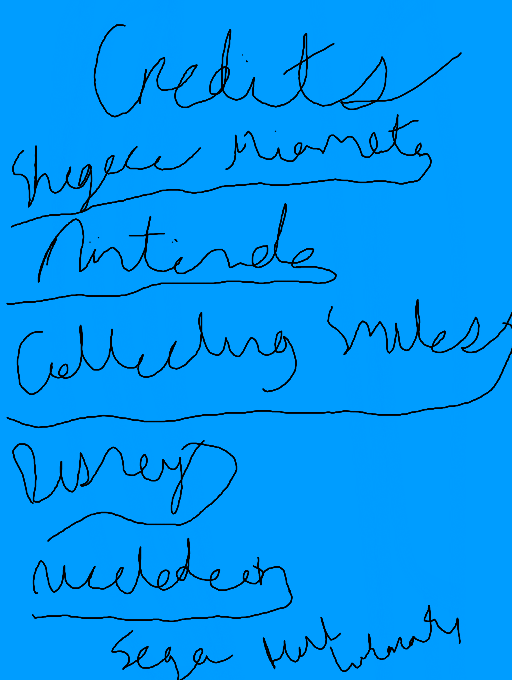 Credits
Shigeru Miamoto
Nintendo
Collecting Smiles
Disney
Nickelodeon
Sega